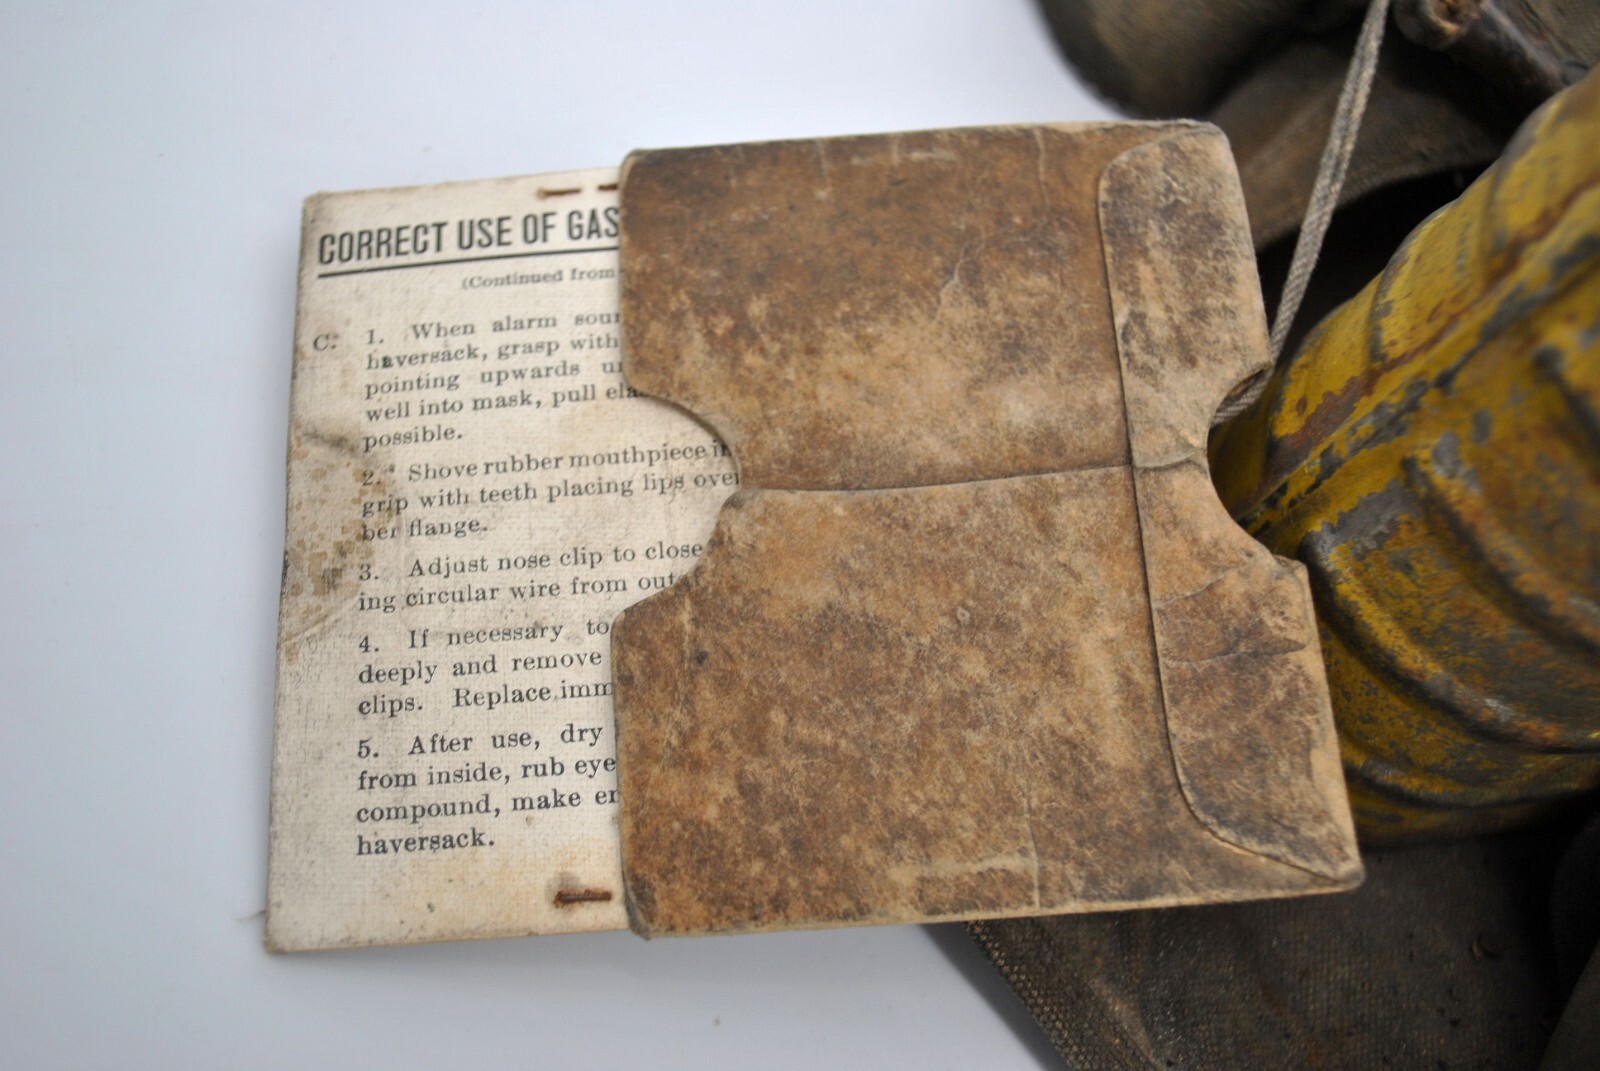 CORRECT USE OF GAS
(Continued from
C: 1. When alarm
haversack, grasp with
pointing upwards
well into mask, pull
possible.
2. Shove rubber mouthpiece
grip with teeth placing lips
ber flange.
3. Adjust nose clip to close
ing circular wire from
4. If necessary to
deeply and remove
clips. Replace
5. After use, dry
from inside, rub eye
compound, make
haversack.